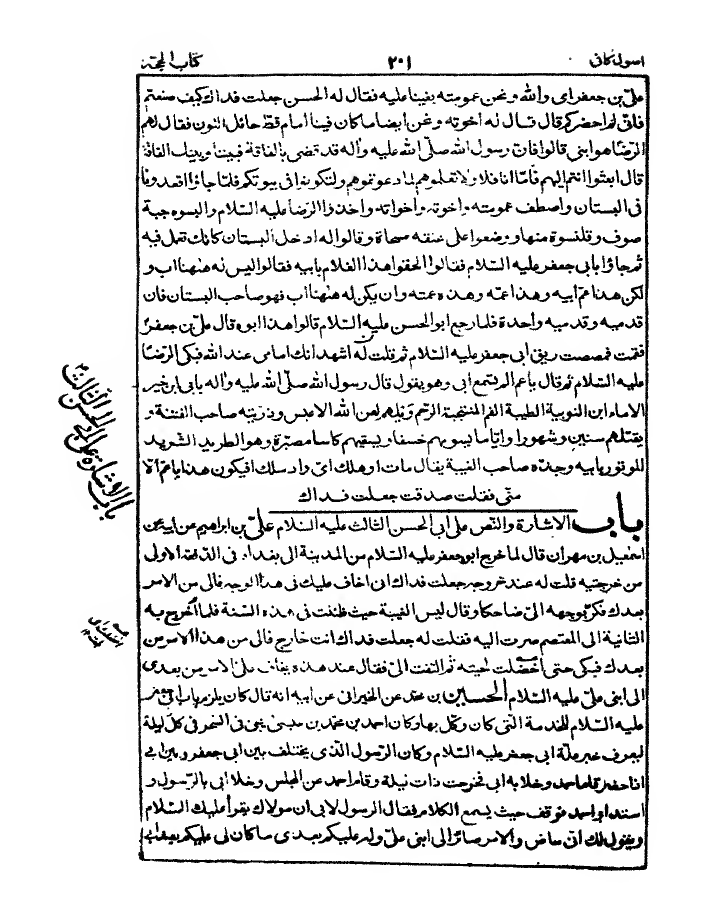 اصول كافى ٢٠١ كتاب الحجة
علىّ بن جعفر اى والله ونحن عمومته بغينا عليه فقال له الحسن جعلت فداك كيف صنعتم
فانى لم احضركم قال قال له اخوته ونحن ايضا ما كان فينا امام قط حائل اللون فقال لهم
الرضا هو ابنى قالوا فانّ رسول الله صلّى الله عليه واله قد قضى بالقافة فبيننا وبينك القافة
قال ابعثوا انتم اليهم فامّا انا فلا ولا تعلموهم لما دعوتموهم ولتكونوا فى بيوتكم فلمّا جاؤا اقعدونا
فى البستان واصطف عمومته واخوته واخواته واخذوا الرضا عليه السّلام والبسوه جبة
صوف وقلنسوة منها ووضعوا على عنقه مسحاة وقالوا له ادخل البستان كانك تعمل فيه
ثم جاؤا بابى جعفر عليه السّلام فقالوا الحقوا هذا الغلام بابيه فقالوا ليس له هٰهنا اب و
لكن هذا عم ابيه وهذا عمّه وهذه عمته وان يكن له هٰهنا اب فهو صاحب البستان فان
قدميه وقدميه واحدة فلما رجع ابو الحسن عليه السّلام قالوا هذا ابوه قال علىّ بن جعفر
فقمت فمصصت ريق ابى جعفر عليه السّلام ثم قلت له اشهد انك امامى عند الله فبكى الرّضا
عليه السّلام ثم قال يا عم الم تسمع ابى وهو يقول قال رسول الله صلّى الله عليه واله بابى ابن خير
الاماء ابن النوبية الطيبة الفم المنتجبة الرّحم ويلهم لعن الله الاعبس وذريّته صاحب الفتنة و
يقتلهم سنين وشهورا وايّاما يسومهم خسفا ويسقيهم كاسا مصبّرة وهو الطريد الشريد
الموتور بابيه وجدّه صاحب الغيبة يقال مات او هلك اىّ واد سلك افيكون هذا يا عم الّا
منّى فقلت صدقت جعلت فداك
باب الاشارة والنّص على ابى الحسن الثالث عليه السلام علىّ بن ابراهيم عن ابيه عن
اسمعيل بن مهران قال لما خرج ابو جعفر عليه السّلام من المدينة الى بغداد فى الدفعة الاولى
من خرجتيه قلت له عند خروجه جعلت فداك انى اخاف عليك فى هذا الوجه فالى من الامر
بعدك فكرّ بوجهه الىّ ضاحكا وقال ليس الغيبة حيث ظننت فى هذه السّنة فلمّا اخرج به
الثانية الى المعتصم صرت اليه فقلت له جعلت فداك انت خارج فالى من هذا الامر من
بعدك فبكى حتى اخضلت لحيته ثم التفت الىّ فقال عند هذه يخاف علىّ الامر من بعدى
الى ابنى علىّ عليه السّلام الحسين بن محمد عن الخيرانى عن ابيه انه قال كان يلزم باب ابى جعفر
عليه السّلام للخدمة التى كان وكّل بها وكان احمد بن محمّد بن عيسى يجئ فى السّحر فى كلّ ليلة
ليعرف خبر علّة ابى جعفر عليه السّلام وكان الرّسول الذى يختلف بين ابى جعفر وبين ابى
اذا حضر قام احمد وخلا به ابى فخرجت ذات ليلة وقام احمد عن المجلس وخلا ابى بالرّسول و
استدار احمد فوقف حيث يسمع الكلام فقال الرسول لابى ان مولاك يقرأ عليك السّلام
ويقول لك انّى ماض والامر صائر الى ابنى علىّ وله عليكم بعدى ما كان لى عليكم بعد ابى
باب الاشارة على ابى الحسن الثالث